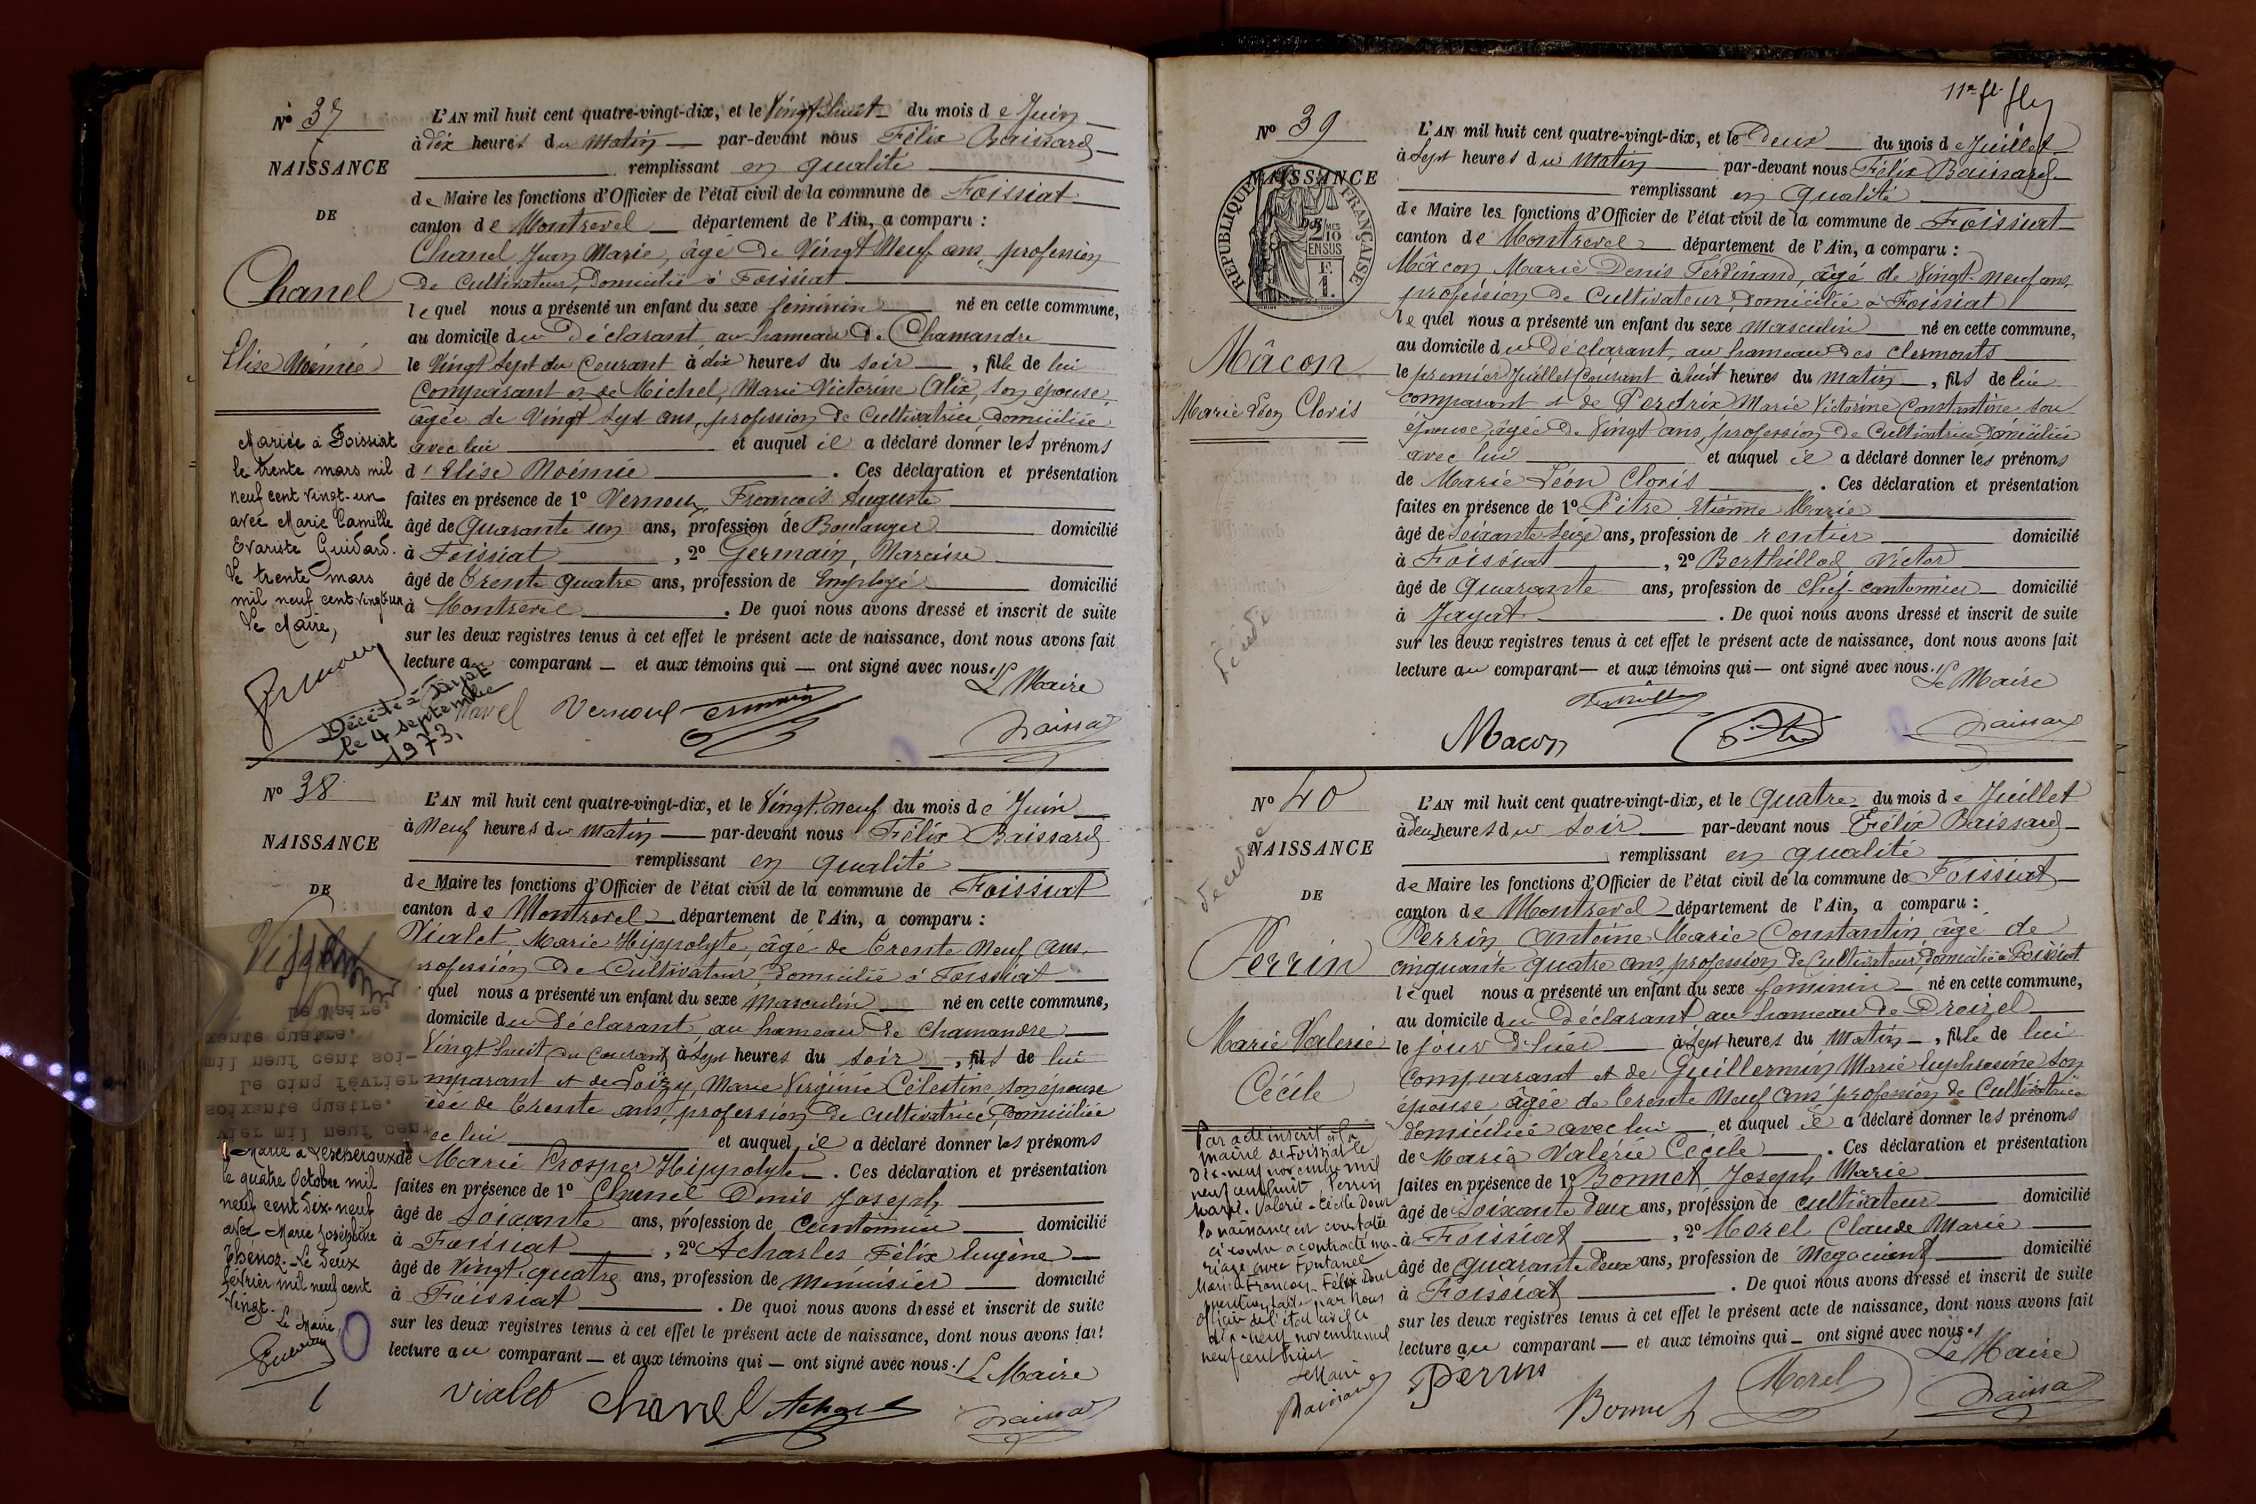 N° 37
NAISSANCE
DE
Chanel
Elise Noémie
Mariée à Foissiat
le trente mars mil
neuf cent vingt-un
avec Marie Camille
Evariste Guidard.
Le trente mars
mil neuf cent vingt un
Le Maire,
Décédée à Jayat
le 4 septembre
1973.
L'AN mil huit cent quatre-vingt-dix, et le Vingt huit du mois de Juin
à dix heures du Matin par-devant nous Félix Baissard
remplissant en qualité
de Maire les fonctions d'Officier de l'état civil de la commune de Foissiat
canton de Montrevel département de l'Ain, a comparu :
Chanel Jean Marie, âgé de Vingt Neuf ans, profession
de Cultivateur, Domicilié à Foissiat
lequel nous a présenté un enfant du sexe féminin né en cette commune,
au domicile du Déclarant, au hameau de Chamandre
le Vingt Sept du Courant à dix heures du soir, fille de lui
Comparant et de Michel, Marie Victorine Alix, son épouse,
âgée de Vingt Sept ans, profession de Cultivatrice, Domiciliée
avec lui et auquel il a déclaré donner les prénoms
d'Elise Noémie. Ces déclaration et présentation
faites en présence de 1° Vernoux François Auguste
âgé de Quarante un ans, profession de Boulanger domicilié
à Foissiat, 2° Germain, Narcisse
âgé de Trente quatre ans, profession de Employé domicilié
à Montrevel. De quoi nous avons dressé et inscrit de suite
sur les deux registres tenus à cet effet le présent acte de naissance, dont nous avons fait
lecture au comparant — et aux témoins qui — ont signé avec nous.
Le Maire
Chanel Vernoux Germain Baissard
N° 38
NAISSANCE
DE
Le Maire,
xante quatre.
mil neuf cent soi-
Le cinq février
soixante quatre.
vier mil neuf cent
Marié à Lescheroux
le quatre Octobre mil
neuf cent dix-neuf
avec Marie Joséphine
Thenoz. Le deux
février mil neuf cent
vingt.
Le Maire,
L'AN mil huit cent quatre-vingt-dix, et le Vingt neuf du mois de Juin
à Neuf heures du Matin par-devant nous Félix Baissard
remplissant en qualité
de Maire les fonctions d'Officier de l'état civil de la commune de Foissiat
canton de Montrevel département de l'Ain, a comparu :
Vialet Marie Hippolyte, âgé de Trente Neuf ans,
profession de Cultivateur, Domicilié à Foissiat
quel nous a présenté un enfant du sexe Masculin né en cette commune,
domicile du Déclarant, au hameau de Chamandre
Vingt huit du Courant à Sept heures du soir, fils de lui
mparant et de Loizy, Marie Virginie Célestine, son épouse
ée de Trente ans, profession de cultivatrice, Domiciliée
ec lui et auquel il a déclaré donner les prénoms
de Marie Prosper Hippolyte. Ces déclaration et présentation
faites en présence de 1° Chanel Denis Joseph
âgé de Soixante ans, profession de Cantonnier domicilié
à Foissiat, 2° Acharles Félix Eugène
âgé de Vingt quatre ans, profession de Menuisier domicilié
à Foissiat. De quoi nous avons dressé et inscrit de suite
sur les deux registres tenus à cet effet le présent acte de naissance, dont nous avons fait
lecture au comparant — et aux témoins qui — ont signé avec nous.
Le Maire
Vialet Chanel Baissard
N° 39
NAISSANCE
DE
RÉPUBLIQUE FRANÇAISE
2 MES 10 EN SUS
F. 1.
Mâcon
Marie Léon Cloris
L'AN mil huit cent quatre-vingt-dix, et le Deux du mois de Juillet
à Sept heures du Matin par-devant nous Félix Baissard
remplissant en qualité
de Maire les fonctions d'Officier de l'état civil de la commune de Foissiat
canton de Montrevel département de l'Ain, a comparu :
Mâcon Marie Denis Ferdinand, âgé de Vingt-neuf ans,
profession de Cultivateur, Domicilié à Foissiat
lequel nous a présenté un enfant du sexe Masculin né en cette commune,
au domicile du Déclarant, au hameau des Clermonts
le premier Juillet Courant à huit heures du matin, fils de lui
comparant et de Perdrix Marie Victorine Constantine son
épouse, âgée de Vingt ans, profession de Cultivatrice, Domiciliée
avec lui et auquel il a déclaré donner les prénoms
de Marie Léon Cloris. Ces déclaration et présentation
faites en présence de 1° Pitre Etienne Marie
âgé de Soixante Seize ans, profession de rentier domicilié
à Foissiat, 2° Berthillod Victor
âgé de Quarante ans, profession de Chef-cantonnier domicilié
à Jayat. De quoi nous avons dressé et inscrit de suite
sur les deux registres tenus à cet effet le présent acte de naissance, dont nous avons fait
lecture au comparant — et aux témoins qui — ont signé avec nous.
Le Maire
Macon Pitre Baissard
N° 40
NAISSANCE
DE
Perrin
Marie Valérie
Cécile
Par acte inscrit à la
mairie de Foissiat le
dix-neuf novembre mil
neuf cent huit Perrin
Marie-Valérie-Cécile dont
la naissance est constatée
ci contre a contracté ma-
riage avec Fontanel
Marie François Félix Dont
mention faite par nous
officier de l'état civil le
dix-neuf novembre mil
neuf cent huit
Le Maire
L'AN mil huit cent quatre-vingt-dix, et le quatre du mois de Juillet
à deux heures du soir par-devant nous Félix Baissard
remplissant en qualité
de Maire les fonctions d'Officier de l'état civil de la commune de Foissiat
canton de Montrevel département de l'Ain, a comparu :
Perrin Antoine Marie Constantin âgé de
cinquante quatre ans, profession de Cultivateur, domicilié à Foissiat
lequel nous a présenté un enfant du sexe féminin né en cette commune,
au domicile du Déclarant au hameau de Broizel
le jour d'hier à Sept heures du Matin, fille de lui
Comparant et de Guillermin Marie Euphrosine son
épouse âgée de Trente Neuf ans profession de Cultivatrice
domiciliée avec lui et auquel il a déclaré donner les prénoms
de Marie Valérie Cécile. Ces déclaration et présentation
faites en présence de 1° Bonnet Joseph Marie
âgé de Soixante Deux ans, profession de cultivateur domicilié
à Foissiat, 2° Morel Claude Marie
âgé de quarante deux ans, profession de Négociant domicilié
à Foissiat. De quoi nous avons dressé et inscrit de suite
sur les deux registres tenus à cet effet le présent acte de naissance, dont nous avons fait
lecture au comparant — et aux témoins qui — ont signé avec nous.
Le Maire
Perrin Bonnet Morel Baissard